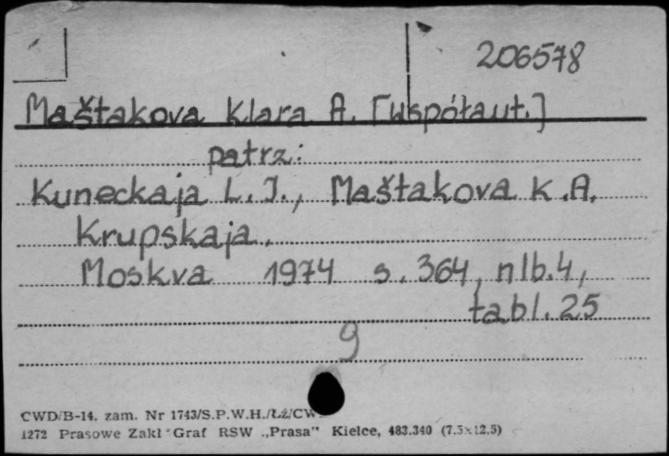 206578
Maštakova Klara A. [współaut.]
patrz:
Kuneckaja L. I., Maštakova K.A.
Krupskaja.
Moskva 1974 s. 364, nlb.4,
tabl. 25
9
CWD/B-14, zam. Nr 1743/S.P.W.H./Łź/CW
1272 Prasowe Zakł Graf RSW „Prasa” Kielce, 483.340 (7.5×12.5)